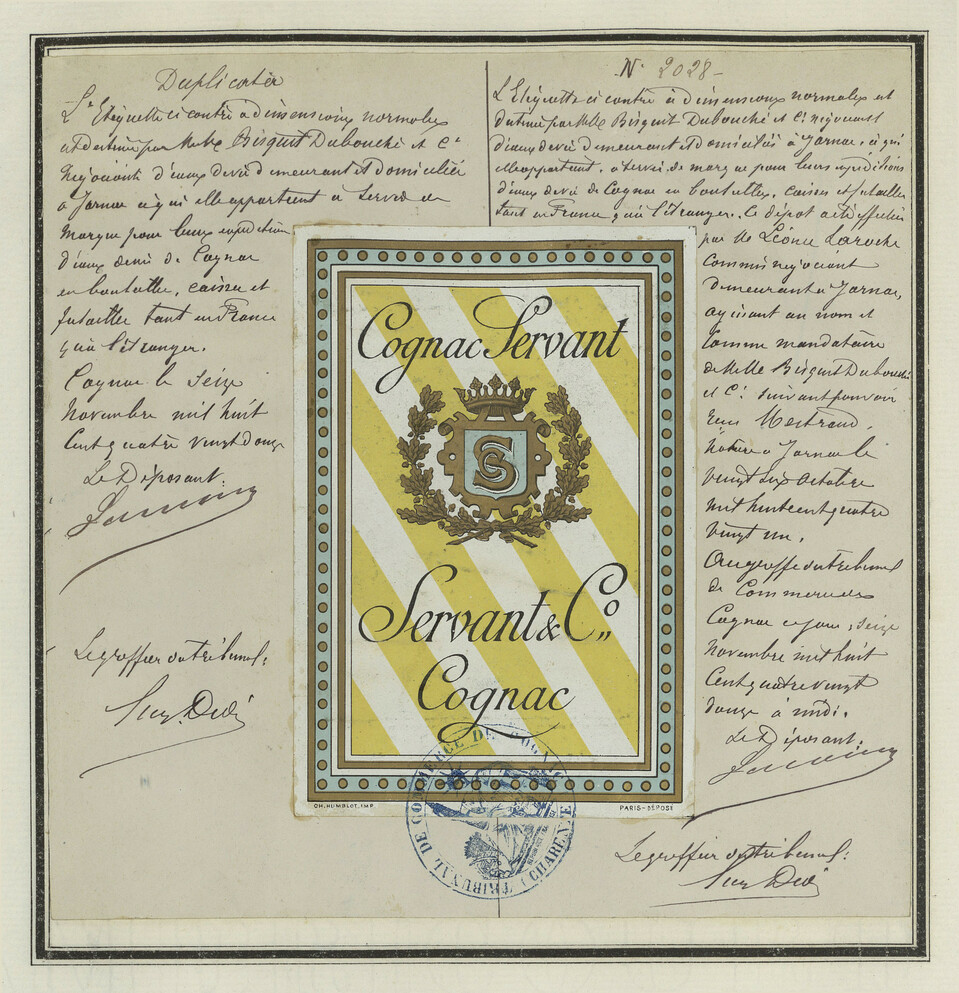 Duplicata
L'Etiquette ci contre a dimensions normales
est destinée par MM. Bisquit Dubouché et Cie
Négociants d'eaux de vie demeurant et domiciliés
à Jarnac à qui elle appartient à servir de
Marque pour leurs expéditions
d'eaux de vie de Cognac
en bouteilles, caisses et
futailles tant en France
qu'à l'étranger.
Cognac le Seize
Novembre mil huit
Cent quatre vingt douze
Le Déposant:
Le greffier du tribunal:
N° 2028
L'Etiquette ci contre a dimensions normales est
destinée par MM. Bisquit Dubouché et Cie négociants
d'eaux de vie demeurant et domiciliés à Jarnac, à qui
elle appartient, à servir de marque pour leurs expéditions
d'eaux de vie de Cognac en bouteilles, caisses et futailles
tant en France qu'à l'étranger. Le dépot a été effectué
par M. Léonce Laroche
Commis négociant
demeurant à Jarnac,
agissant au nom et
Comme mandataire
de MM. Bisquit Dubouché
et Cie suivant pouvoir
Notaire à Jarnac le
vingt six octobre
mil huit cent quatre
vingt un.
Au greffe du tribunal
de Commerce de
Cognac ce jour, seize
Novembre mil huit
Cent quatre vingt
douze à midi.
Le Déposant:
Le greffier du tribunal:
Cognac Servant
S S
Servant & Co.,
Cognac
CH. HUMBLOT, IMP.
PARIS-DÉPOSÉ
TRIBUNAL DE COMMERCE DE COGNAC (CHARENTE)